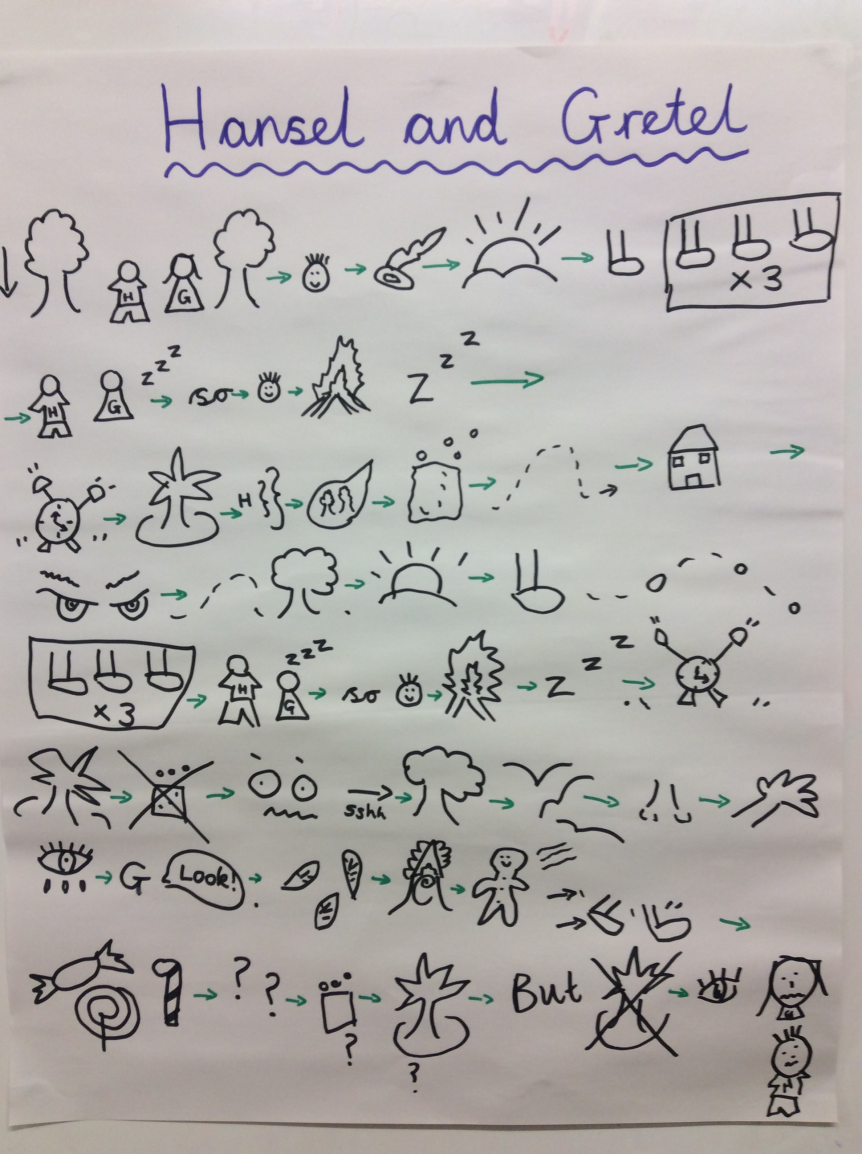 Hansel and Gretel
H G x 3
H G zzz so zzz
H
x 3 H G zzz so zzz
sshh
G Look!
? ? ? ? But
H